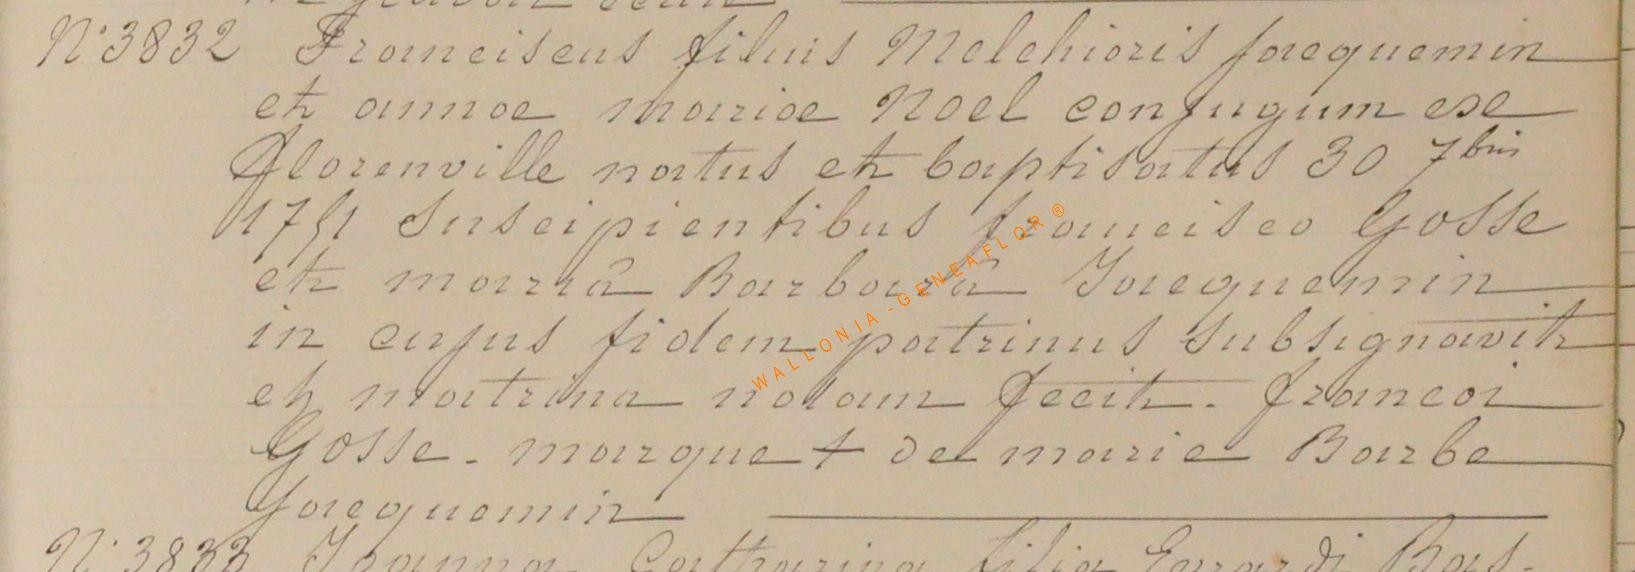 N° 3832 Franciscus filius Melchioris Jacquemin
et annae mariae Noel conjugum ex
florenville natus et baptisatus 30 7bris
1751 Suscipientibus francisco Gosse
et mariâ Barbarâ Jacquemin
in cujus fidem patrinus subsignavit
et matrina notam fecit. francoi
Gosse. marque + de marie Barbe
Jacquemin
N° 3833 Joanna Catharina filia Erardi Bas-
WALLONIA - GENEAFLOR ®